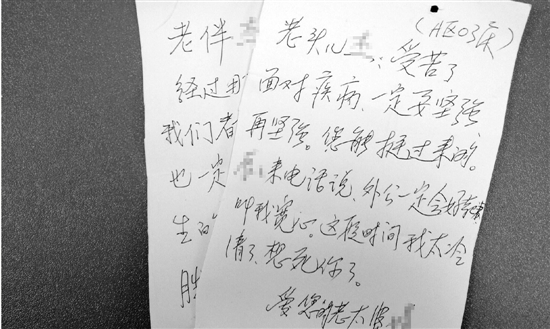 老伴
经过
我们
也一定
生
胜
(A区03床)
老头儿：受苦了
面对疾病、一定要坚强
再坚强。您能挺过来的。
来电话说、外公一定会好起来
叫我宽心。这段时间我太冷
清了、想死你了。
爱您的老太婆